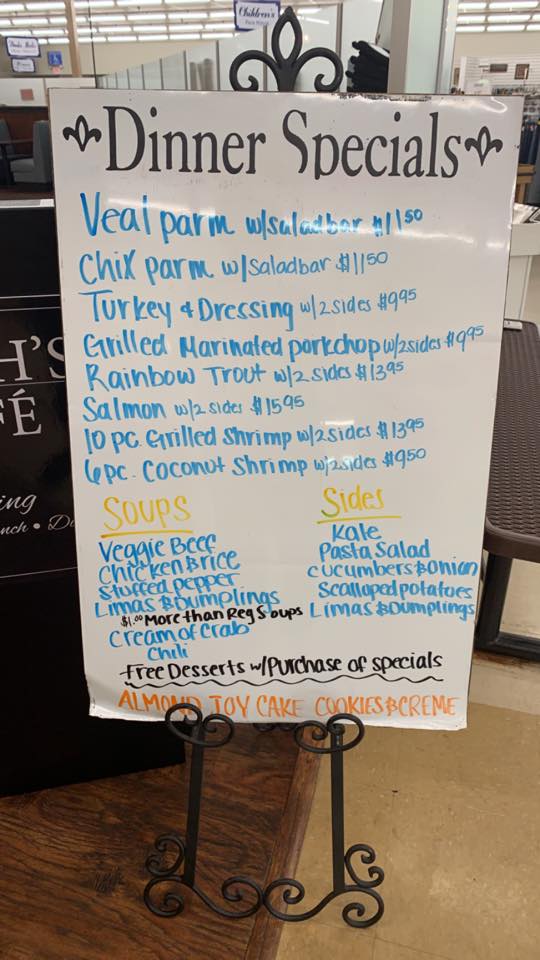 Children's
Dinner Specials
Veal parm w/saladbar $11.50
Chix parm w/saladbar $11.50
Turkey & Dressing w/2 sides $9.95
Grilled Marinated porkchop w/2 sides $9.95
Rainbow Trout w/2 sides $13.95
Salmon w/2 sides $15.95
10 pc. Grilled Shrimp w/2 sides $13.95
6 pc. Coconut Shrimp w/2 sides $9.50
Soups
Veggie Beef
Chicken & rice
Stuffed pepper
Limas & Dumplings
$1.00 More than Reg Soups
Cream of Crab
Chili
Sides
Kale
Pasta Salad
Cucumbers & Onion
Scalloped potatoes
Limas & Dumplings
Free Desserts w/Purchase of specials
ALMOND JOY CAKE COOKIES & CREME
H'S
FÉ
ing
nch • D